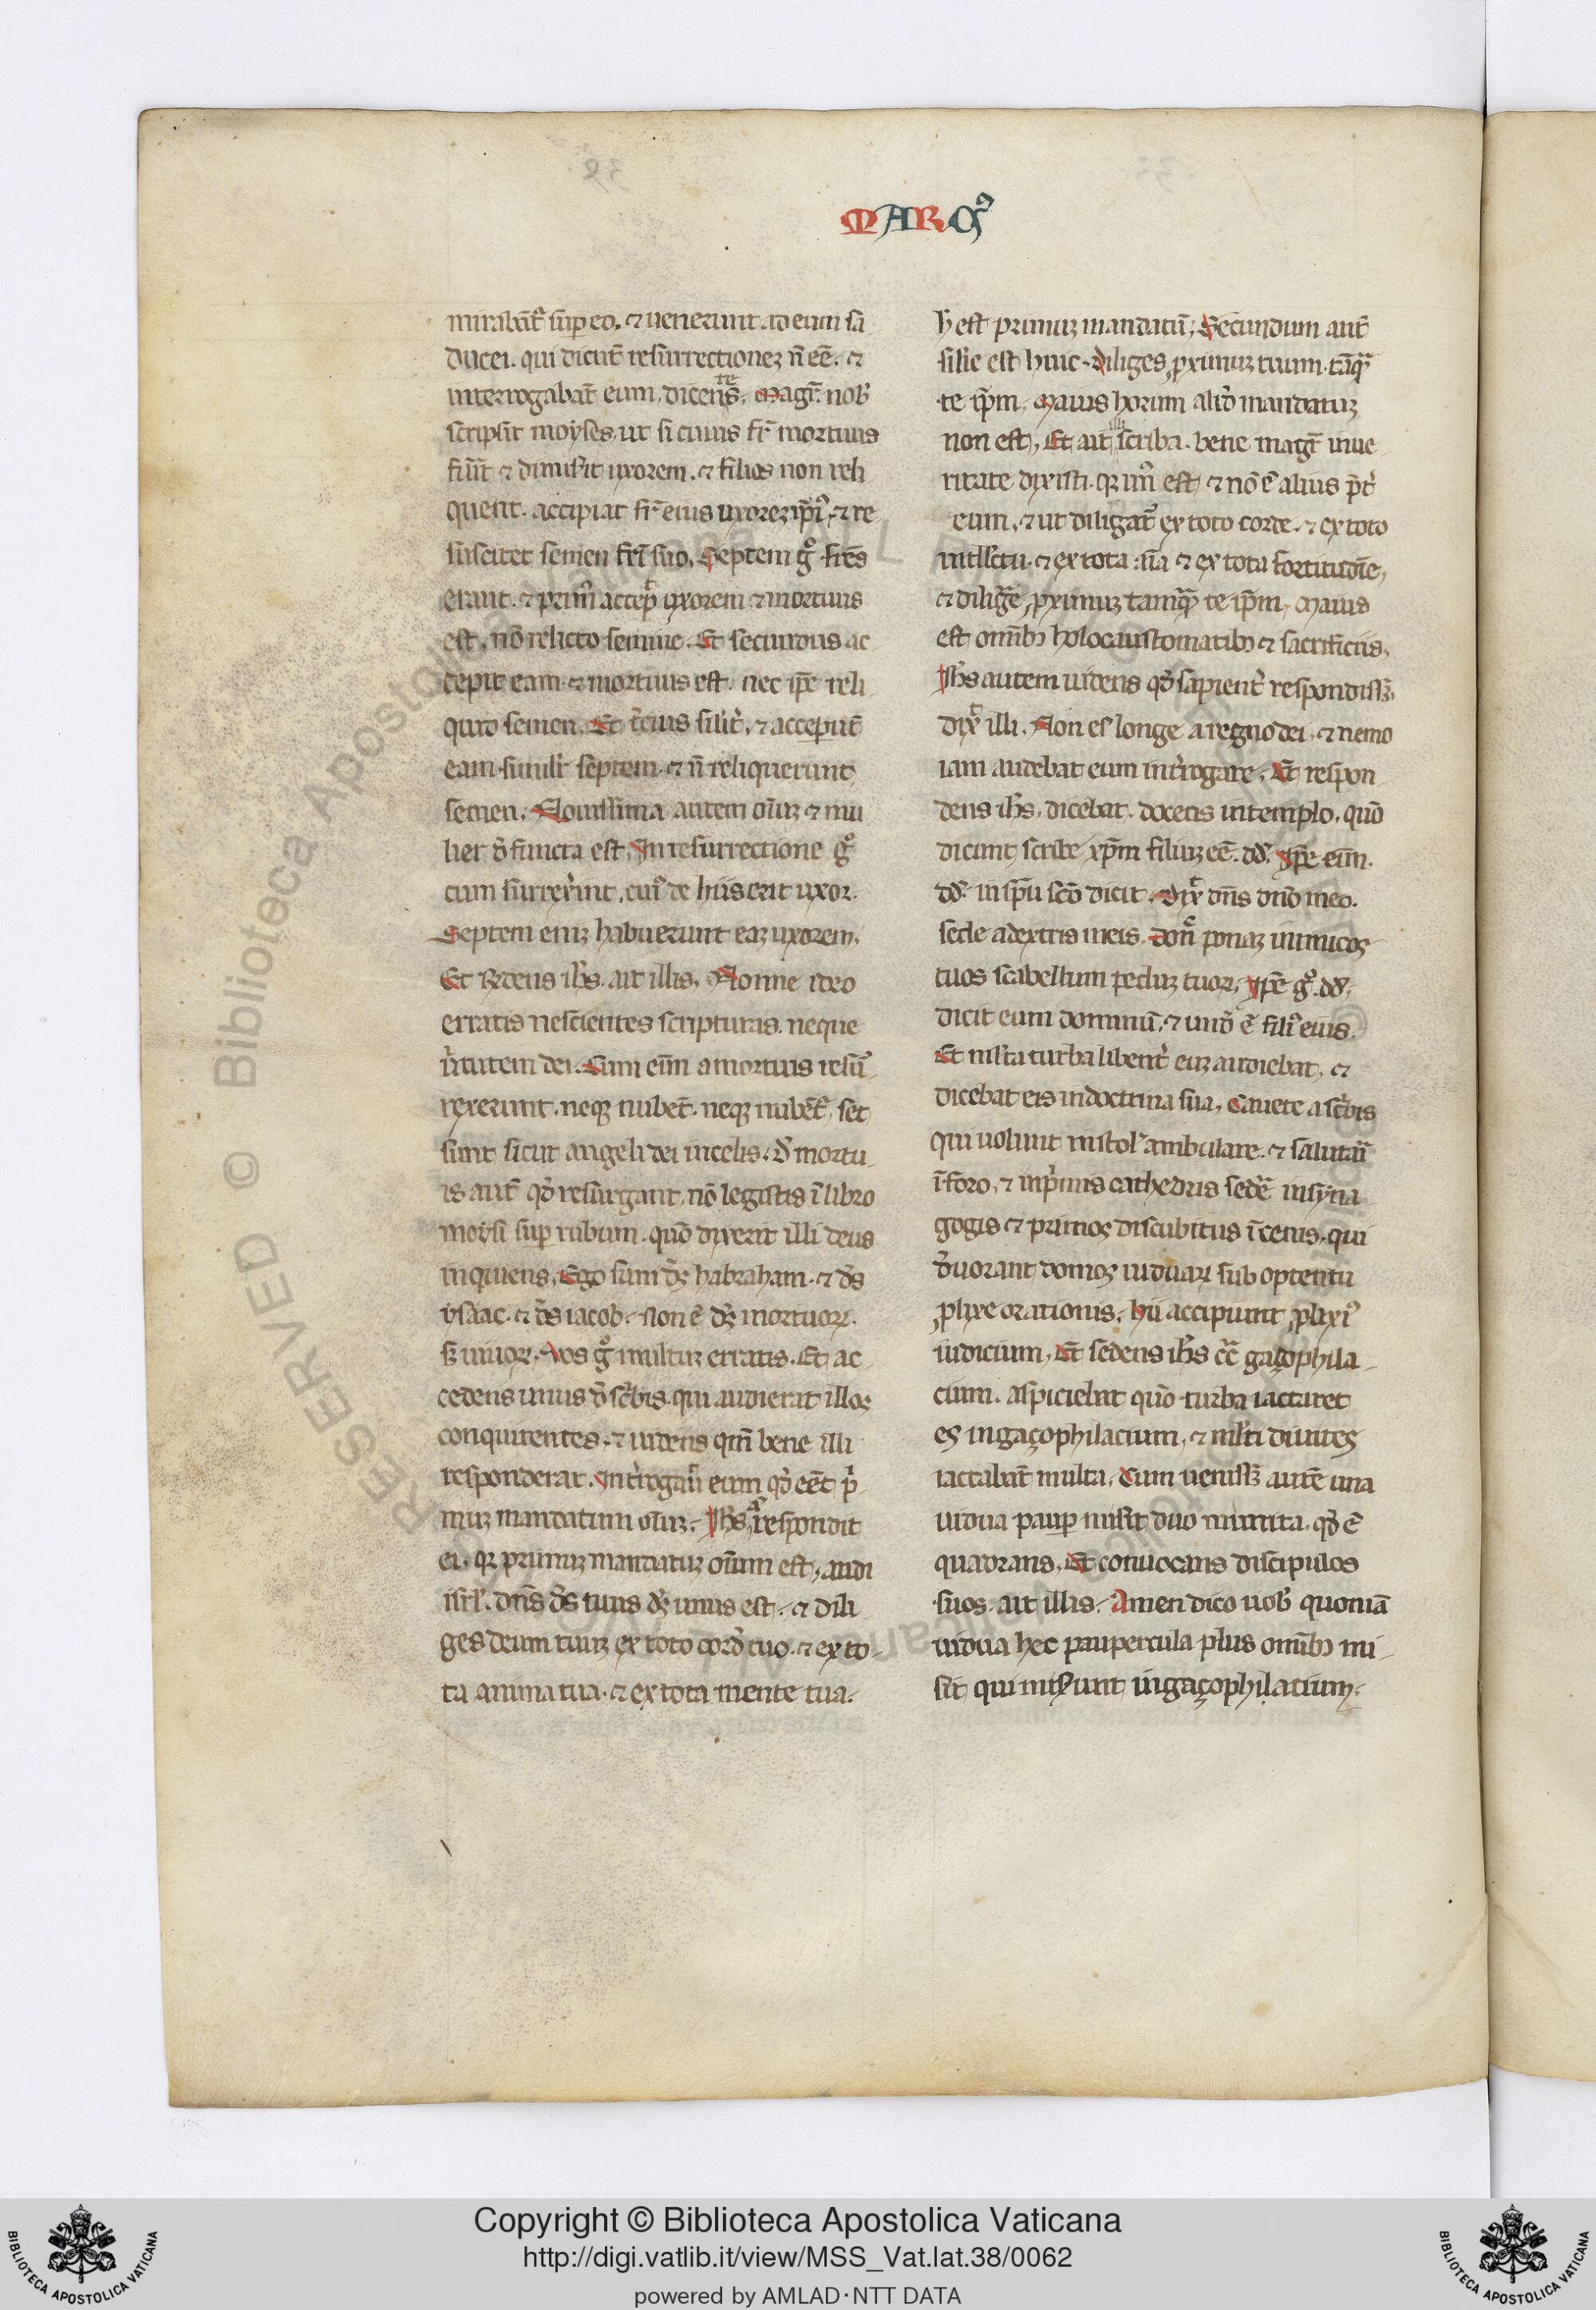 MARCꝰ
mirabāt᷑ suꝑ eo. ⁊ uenerunt ad eum sa
ducei. qui dicūt resurrectioneꝫ n̄ eē. ⁊
interrogabāt eum, dicens̄. Magr̄. nob̾
te
scripsit moyses, ut si cuius fr̄ mortuus
fu̾it ⁊ dimiserit uxorem. ⁊ filios non reli
querit. accipiat fr̄ eius uxoreꝫ ip̄iꝰ, ⁊ re
suscitet semen fr̄i suo. Septem gͦ frēs
erant. ⁊ primꝰ accep̾ uxorem ⁊ mortuus
est. nō relicto semine. Et secundus ac
cepit eam ⁊ mortuus est. nec ip̄e reli
quid semen. Et t̾cius silit̾. ⁊ acceperūt
eam similit̾ septem. ⁊ n̄ reliquerunt
semen. Nouissima autem oīuꝫ ⁊ mu
lier d̾functa est. In resurrectione gͦ
cum surrex̾int, cuiꝰ de hiis erit uxor.
Septem eniꝫ habuerunt eaꝫ uxorem.
Et r̄dens ih̄s. ait illis. Nonne ideo
erratis nescientes scripturas. neque
u̾tutem dei. Cum eīm a mortuis resur
rexerunt. neqꝫ nubēt. neqꝫ nubēt᷑, set
sunt sicut angeli dei in celis. d̾ mortu
is aut̄ qd̾ resurgant, nō legistis ī libro
moysi suꝑ rubum. quō dixerit illi deus
inquiens. Ego sum dꝫ habraham. ⁊ ds̄
ysaac. ⁊ ds̄ iacob. Non ē dꝫ mortuoꝝ.
sꝫ uiuoꝝ. Vos gͦ multuꝫ erratis. Et ac
cedens unus d̾ sc̾bis. qui audierat illos
conquirentes. ⁊ uidens qm̄ bene illi
responderat. Int̾rogau̾ eum qd̾ eēt p̾
muꝫ mandatum oīuꝫ. Ih̄s aͣ respondit
ei. qꝛ primuꝫ mandatuꝫ oīum est, audi
isrl̾. dn̄s ds̄ tuus dꝫ unus est. ⁊ dili
ges deum tuuꝫ ex toto cord̾ tuo. ⁊ ex to
ta anima tua. ⁊ ex tota mente tua.
h̾ est primuꝫ mandatū, Secundum aut̄
sil̾e est huic. diliges ꝓximuꝫ tuum. tāqͣ
te ip̄m. Maius horum aliud mandatuꝫ
non est, Et ait scriba. bene magr̄ in ue
illi
ritate dixisti. qꝛ unꝰ est, ⁊ nō ē alius p̄t̾
eum. ⁊ ut diligat᷑ ex toto corde. ⁊ ex toto
intll̾ctu. ⁊ ex tota aīa ⁊ ex tota fortitudīe,
⁊ dilig̾e ꝓximuꝫ tamqͣ te ip̄m. Maius
est omībꝫ holocaustomatibꝫ ⁊ sacrificiis.
Ih̄s autem uidens qd̾ sapient̾ respondissꝫ.
dix̾ illi. Non es longe a regno dei. ⁊ nemo
iam audebat eum int̾rogare. Et respon
dens ih̄s, dicebat. docens in templo. quō
dicunt scribe xp̄m filiuꝫ eē. dd̾. Ip̄e eīm.
dd̾. in sp̄u scō dicit. Dix̾ dn̄s dnō meo.
sede a dextris meis. don̄ ponaꝫ inimicos
tuos scabellum peduꝫ tuoꝝ. Ip̄e gͦ. dd̾.
dicit eum dominū. ⁊ und̾ ē filiꝰ eius.
Et mlta turba libent̾ euꝫ audiebat. ⁊
dicebat eis in doctrina sua. Cauete a sc̾bis
qui uolunt in stol̾ ambulare. ⁊ salutari
ī foro, ⁊ in p̾mis cathedris sed̾e in syna
gogis ⁊ primos discubitus ī cenis. qui
d̾uorant domos uiduaꝝ sub optentu
ꝓlixe orationis. hii accipiunt ꝓlixiꝰ
iudicium. Et sedens ih̄s cͣ gaçophila
cium. aspiciebat quō turba iactaret
es in gaçophilacium. ⁊ ml̾ti diuites
iactabāt multa. Cum uenissꝫ autē una
uidua pauꝑ misit duo minuta. qd̾ ē
quadrans. Et conuocans discipulos
suos. ait illis. Amen dico uob̾ quoniā
uidua hec paupercula plus omībꝫ mi
sit, qui mis̾unt in gaçophilacium.
Copyright © Biblioteca Apostolica Vaticana
http://digi.vatlib.it/view/MSS_Vat.lat.38/0062
powered by AMLAD·NTT DATA
BIBLIOTECA APOSTOLICA VATICANA
BIBLIOTECA APOSTOLICA VATICANA